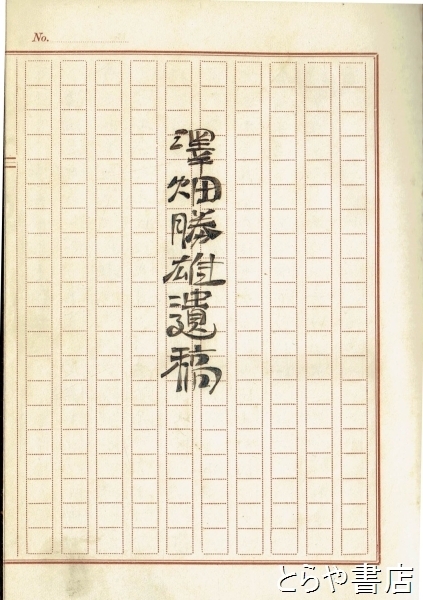 No.
澤畑勝雄遺稿
とらや書店